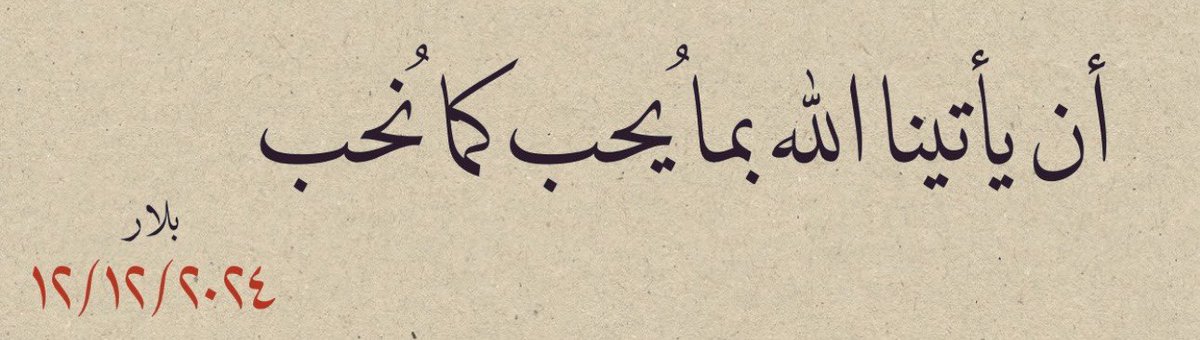 أن يأتينا الله بما يُحب كما نُحب
بلار
١٢/١٢/٢٠٢٤